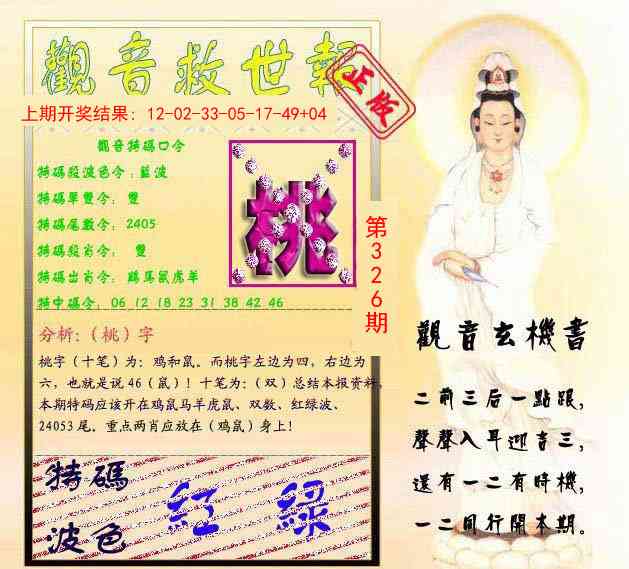 觀音救世報
正版
上期开奖结果：12-02-33-05-17-49+04
觀音特碼口令
特碼段波色令：藍波
特碼單雙令： 雙
特碼尾數令： 2405
特碼段肖令： 雙
特碼出肖令： 鷄馬鼠虎羊
特中碼令： 06 12 18 23 31 38 42 46
桃
第326期
分析:（桃）字
桃字（十笔）为：鸡和鼠。而桃字左边为四，右边为
六，也就是说 46（鼠）！十笔为：（双）总结本报资料，
本期特码应该开在鸡鼠马羊虎鼠、双数、红绿波、
24053 尾。重点两肖应放在（鸡鼠）身上！
特碼
波色
紅 綠
觀音玄機書
二前三后一點跟，
聲聲入耳迎吉三，
還有一二有時機，
一二同行開本期。